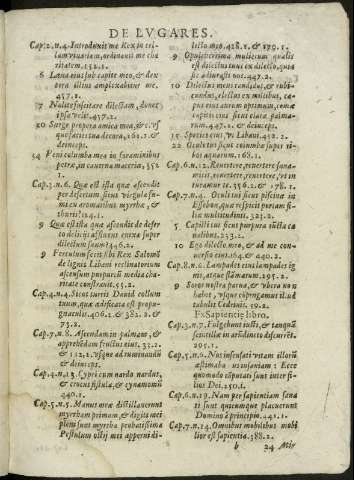 DE LVGARES.
Cap.2.n.4. Introduxit me Rex in cel-
lam vinariam, ordinauit me cha
ritatem. 152.1.
6 Læua eius sub capite meo, & dex
tera illius amplexabitur me.
457.2.
7 Nolite suscitare dilectam, donec
ipsa velit. 457.2.
10 Surge propera amica mea, &c. vs
que
deinceps.
14 Peni columba mea in foraminibus
petræ, in cauerna maceriæ. 352.
1
Cap.3.n.6. Quæ est ista quæ ascendit
per desertum, sicut virgula fu-
mi ex aromatibus myrrhæ, &
thuris? 24.1.
9 Quæ est ista quæ ascendit de deser
to delicijs affluens enixa super
dilectum suum? 446.2.
9 Ferculum fecit sibi Rex Salomõ
de lignis Libani reclinatorium
ascensum purpureũ media cha-
ritate constrauit. 55.2.
Cap.4.n.4. Sicut turris Dauid collum
tuum, quæ ædificata est propu-
gnaculis. 406.2. & 382.2. &
73.2.
Cap.7.n.8. Ascendam in palmam, &
apprehedam fructus eius. 33.2.
& 132.2. vsque ad
& deinceps.
Cap.4.n.13. Cypri cum nardo nardus,
& crocus, fistula, & cynamomũ
440.1.
Cap.5.n.5. Manus meæ distillauerunt
myrrham primam, & digiti mei
pleni sunt myrrha probatissima
Pestulum ostij mei apperui di-
lecto meo. 428.1. & 179.1.
9 O pulcherrima mulierum qualis
est dilectus tuus ex dilecto, quia
sic adiurasti nos. 447.2.
10 Dilectus meus candidus, & rubi-
cundus, electus ex milibus, ca-
put eius aurum optimum, comæ
capitis eius sicut elatæ palma-
rum. 447.2. & deinceps.
15 Species eius, vt Libani. 452.2.
22 Oculi tui sicut columbæ super ri-
bos aquarum. 168.1.
Cap.6.n.12. Reuertere, reuertere suna-
mitis, reuertere, reuertere, vt in
tueamur te. 356.2. & 178.1.
Cap.7.n.4. Oculi tui sicut piscinæ in
Essebon, quæ respicit portam fi-
liæ multitudinis. 321.2.
5 Capilli tui sicut purpura iũcta ca
nalibus. 233.2.
10 Ego dilecto meo, & ad me con-
uersio eius. 164. & 440.2.
Cap.8.n.6. Lampades eius lampades ig
nis, atque flamarum. 295.2.
9 Soror nostra parua, & vbera non
habet, vsque cõpingamus illud
tabulis Cedrinis. 39.2.
Ex Sapientię libro.
Cap.3.n.7. Fulgebunt iusti, & tanquã
scintillæ in arũdineto discurrẽt.
295.1.
Cap.5.n.6. Nos insensati vitam illorũ
æstimabamus insaniam: Ecce
quomodo cõputati sunt inter fi-
lios Dei. 250.1.
Cap.6.n.19. Nam per sapientiam sana
ti sunt quicumque placuerunt
Domino à principio. 441.1.
Cap.7.n.14. Omnibus mobilibus mobi
lior est sapientia. 388.2.
b
24 Attin